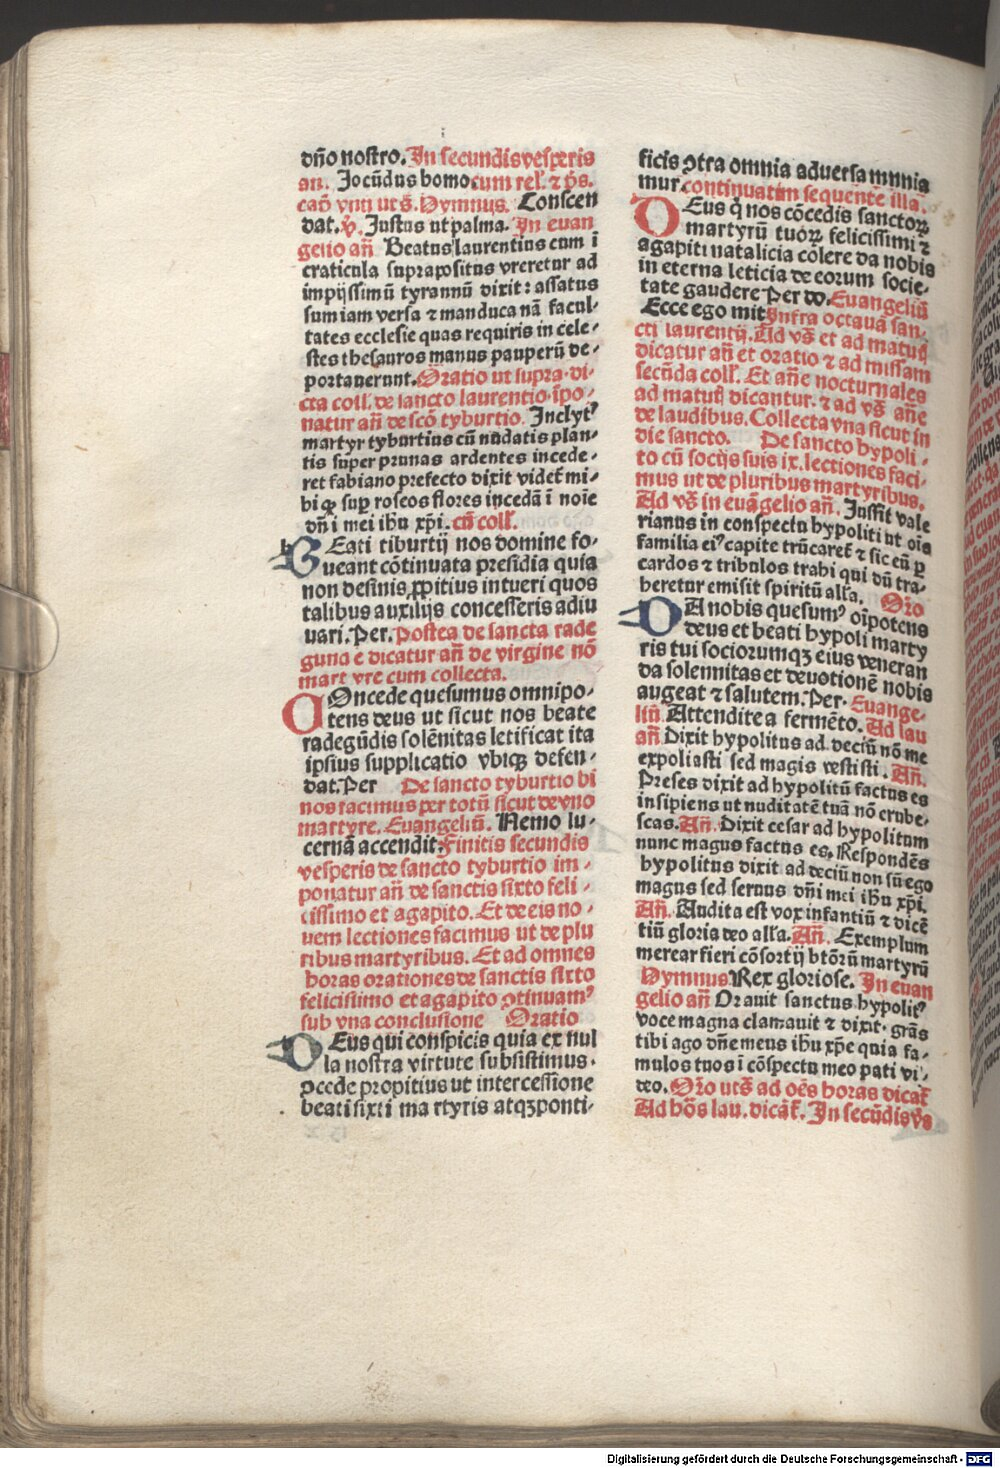 dño nostro. In secundis vesperis
an. Jocūdus homo cum rel. ⁊ p̄s.
caō vnū ut s̄. Hymnus. Conscen
dat. v̄. Justus ut palma. In euan
gelio añ Beatus laurentius cum ī
craticula suprapositus vreretur ad
impijssimū tyrannū dixit: assatus
sum iam versa ⁊ manduca nā facul-
tates ecclesie quas requiris in cele-
stes thesauros manus pauperū de-
portauerunt. Oratio ut supra di-
cta coll. de sancto laurentio. īpo-
natur añ de scō tyburtio. Inclytꝰ
martyr tyburtius cū nudatis plan-
tis super prunas ardentes incede-
ret fabiano prefecto dixit videt̄ mi-
hi ꝙ sup̄ roseos flores incedā ī noīe
dñi mei ihu xp̄i. cū coll.
BEati tiburtij nos domine fo-
ueant cōtinuata presidia quia
non desinis ꝓpitius intueri quos
talibus auxilijs concesseris adiu
uari. Per. Postea de sancta rade
gunde dicatur añ de virgine nō
mart vre cum collecta.
COncede quesumus omnipo-
tens deus ut sicut nos beate
radegūdis solēnitas letificat ita
ipsius supplicatio vbiqꝫ defen-
dat. Per De sancto tyburtio hi
nos facimus per totū sicut de vno
martyre. Euangeliū. Nemo lu-
cernā accendit. Finitis secundis
vesperis de sancto tyburtio im-
ponatur añ de sanctis sixto feli-
cissimo et agapito. Et de eis no-
uem lectiones facimus ut de plu
ribus martyribus. Et ad omnes
horas orationes de sanctis sixto
felicissimo et agapito ꝯtinuamꝰ
sub vna conclusione Oratio
DEus qui conspicis quia ex nul
la nostra virtute subsistimus.
ꝓcede propitius ut intercessione
beati sixti martyris atqꝫ ponti-
ficis ꝯtra omnia aduersa munia
mur. continuatim sequente illa.
DEus q̄ nos cōcedis sanctoꝝ
martyrū tuoꝝ felicissimi ⁊
agapiti natalicia cōlere da nobis
in eterna leticia de eorum socie-
tate gaudere Per do. Euangeliū
Ecce ego mit. Infra octauā san-
cti laurentij. Ad vs̄ et ad matuť
dicatur añ et oratio ⁊ ad missam
secūda coll. Et añe nocturnales
ad matuť dicantur. ⁊ ad vs̄ añe
de laudibus. Collecta vna sicut in
die sancto. De sancto hypoli-
to cū socijs suis ix. lectiones faci-
mus ut de pluribus martyribus.
Ad vs̄ in euāgelio añ. Jussit vale
rianus in conspectu hypoliti ut oīs
familia eiꝰ capite trūcaret̄ ⁊ sic eū ꝑ
cardos ⁊ tribulos trahi qui dū tra-
heretur emisit spiritū alľa. Orō
DA nobis quesumꝰ oīpotens
deus et beati hypoli marty
ris tui sociorumqꝫ eius veneran
da solennitas et deuotionē nobis
augeat ⁊ salutem. Per. Euange-
liū. Attendite a fermēto. Ad lau
añ Dixit hypolitus ad deciū nō me
expoliasti sed magis vestisti. Añ.
Preses dixit ad hypolitū factus es
insipiens ut nuditatē tuā nō erube-
scas. Añ. Dixit cesar ad hypolitum
nunc magus factus es. Respondēs
hypolitus dixit ad deciū non sū ego
magus sed seruus dñi mei ihu xp̄i.
Añ. Audita est vox infantiū ⁊ dicē
tiū gloria deo alľa. Añ. Exemplum
merear fieri cōsortij btōrū martyrū
Hymnus. Rex gloriose. In euan
gelio añ Orauit sanctus hypolitꝰ
voce magna clamauit ⁊ dixit. grās
tibi ago dñe meus ihu xp̄e quia fa-
mulos tuos ī cōspectu meo pati vi-
deo. Orō uts̄ ad oēs horas dicat̄
Ad hōs lau. dicāt̄. In secūdis vs̄
Digitalisierung gefördert durch die Deutsche Forschungsgemeinschaft - DFG